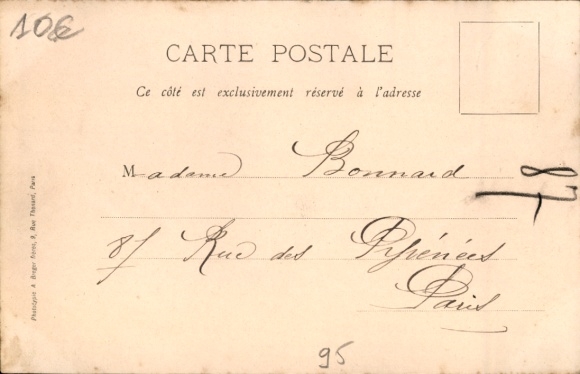 10€
CARTE POSTALE
Ce côté est exclusivement réservé à l'adresse
Madame Bonnard
85 Rue des Pyrénées
Paris
95
Phototypie A. Breger Frères, 9, Rue Thénard, Paris